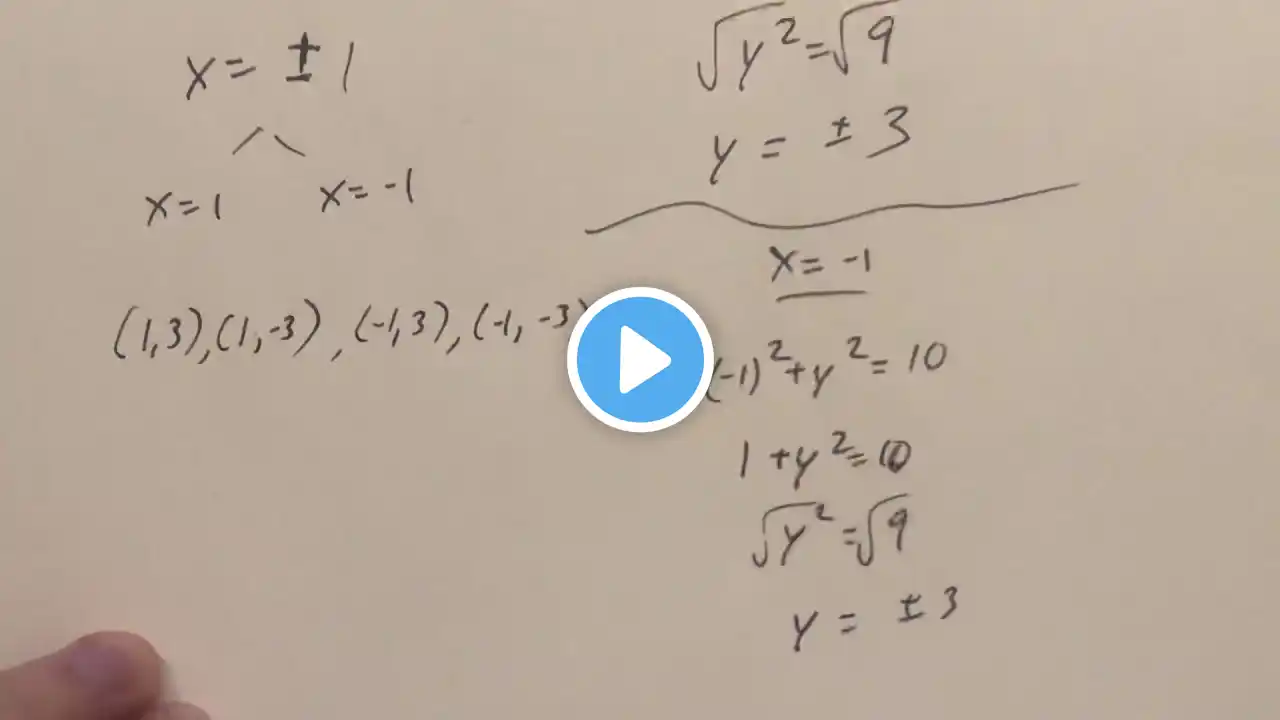 x = ± 1
x = 1 x = -1
(1,3), (1,-3), (-1,3), (-1, -3)
√y² = √9
y = ± 3
x = -1
(-1)² + y² = 10
1 + y² = 10
√y² = √9
y = ± 3